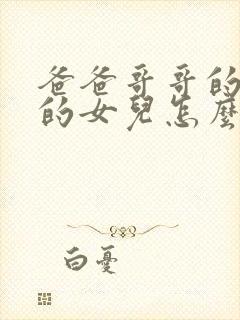 爸爸哥哥的
的女兒怎麼
白憂